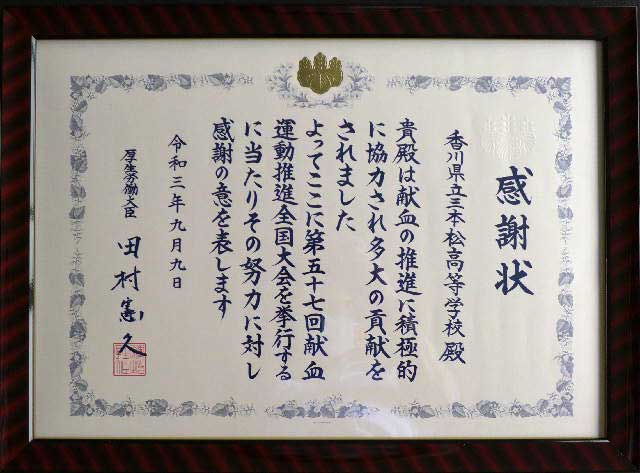 感謝状
香川県立三本松高等学校 殿
貴殿は献血の推進に積極的
に協力され多大の貢献を
されました
よってここに第五十七回献血
運動推進全国大会を挙行する
に当たりその努力に対し
感謝の意を表します
令和三年九月九日
厚生労働大臣 田村憲久